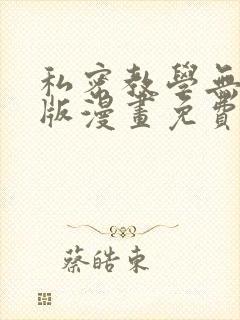 私密教學無
版漫畫免費
蔡皓東